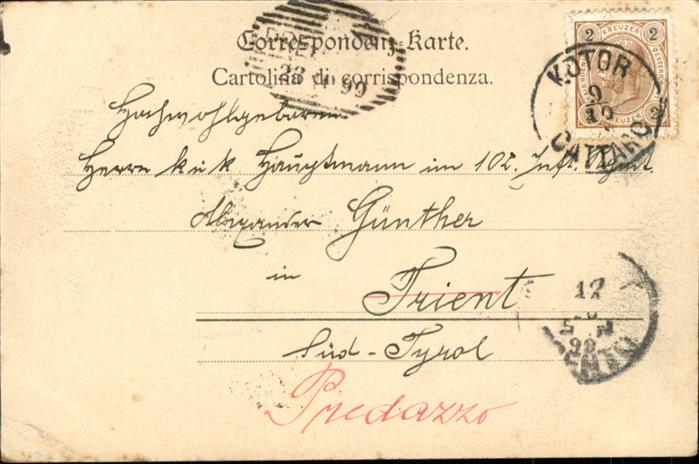 Correspondenz-Karte.
Cartolina di corrispondenza.
2 KREUZER 2
2 KREUZER 2
KOTOR
9
10
CATTARO
23 99
Hochwohlgeboren
Herrn k u k Hauptmann im 102. Inft. Rgmt
Alexander Günther
in
Trient
Süd-Tyrol
Predazzo
12
98